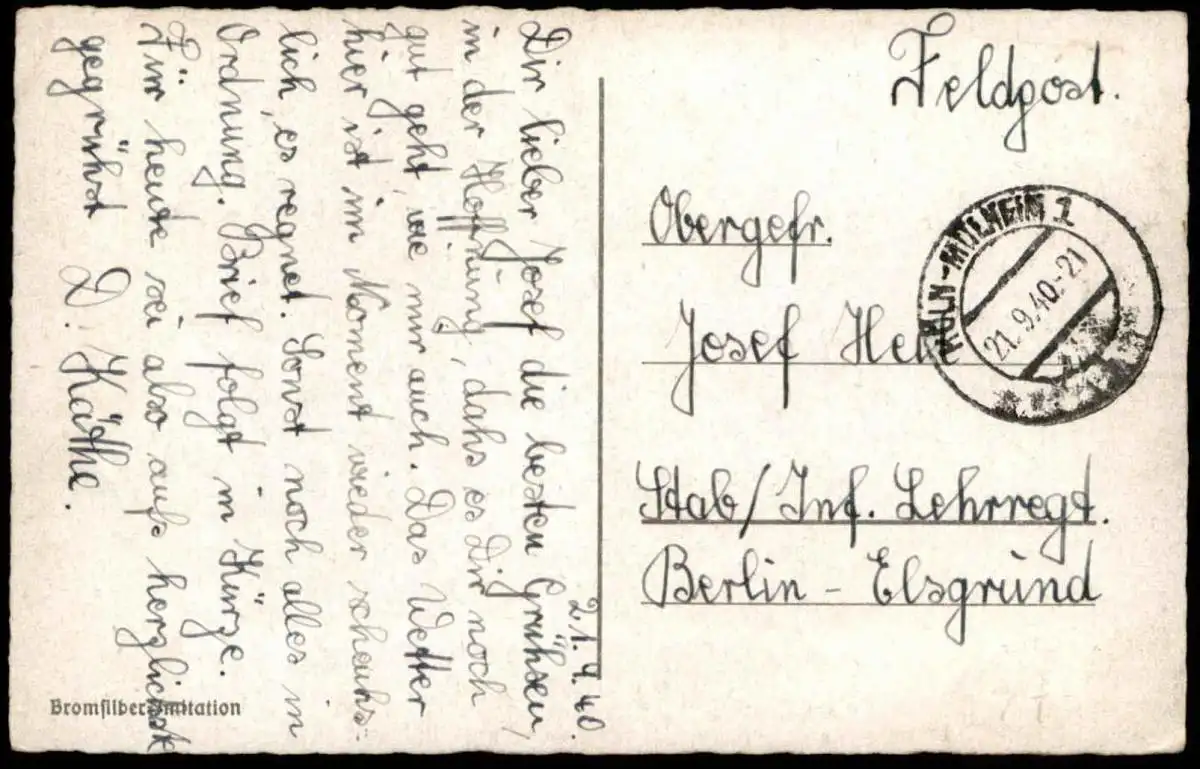 21.9.40.
Dir lieber Josef die besten Grühsen,
in der Hoffnung, dahs es Dir noch
gut geht, wie mir auch. Das Wetter
hier ist im Moment wieder scheuhs-
lich, es regnet. Sonst noch alles in
Ordnung. Brief folgt in Kürze.
Für heute sei also aufs herzlichst
gegrühst D. Käthe.
Bromsilber-Imitation
Feldpost.
KÖLN-MÜLHEIM 1
21.9.40.-21
Obergefr.
Josef
Stab/Inf. Lehrregt.
Berlin - Elsgrund